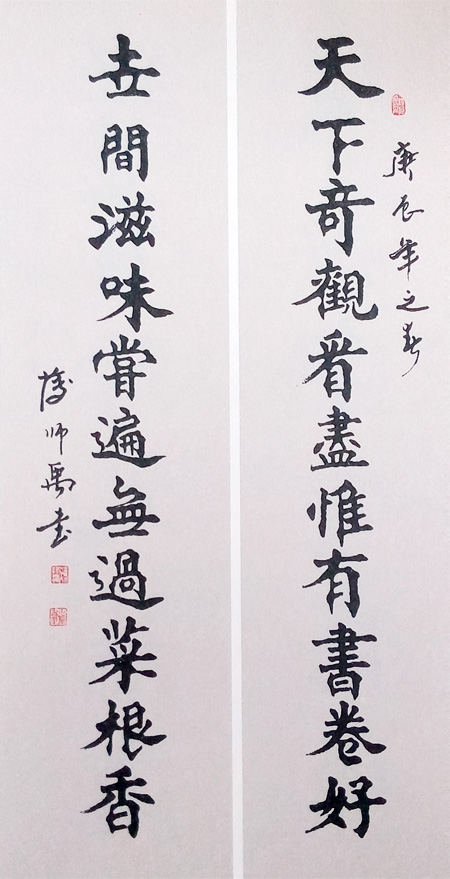 天下奇觀看盡惟有書卷好
庚辰年之春
世間滋味嘗遍無過菜根香
師禹書